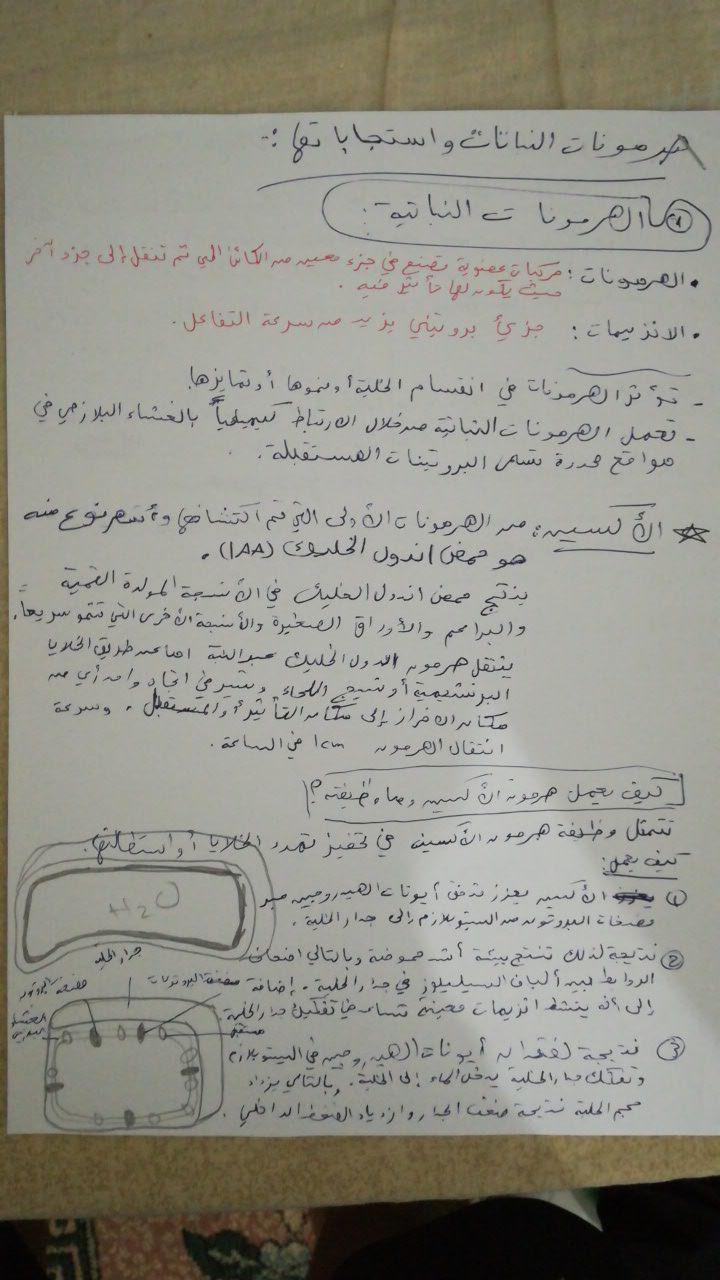 هرمونات النباتات واستجاباتها :-
① الهرمونات النباتية :
• الهرمونات : مركبات عضوية تصنع في جزء معين من الكائن الحي ثم تنقل إلى جزء آخر
حيث يكون لها تأثير فيه .
• الانزيمات : جزيئ بروتيني يزيد من سرعة التفاعل .
- تؤثر الهرمونات في انقسام الخلية أو نموها أو تمايزها.
- تعمل الهرمونات النباتية من خلال الارتباط كيميائياً بالغشاء البلازمي في
مواقع محددة تسمى البروتينات المستقبلة .
☆ الأكسين : من الهرمونات الأولى التي تم اكتشافها وأشهر نوع منه
هو حمض اندول الخليك (IAA) .
ينتج حمض اندول الخليك في الأنسجة المولدة القمية
والبراعم والأوراق الصغيرة والأنسجة الأخرى التي تنمو سريعاً.
ينتقل هرمون اندول الخليك عبر النبتة اما عن طريق الخلايا
البرنشيمية أو نسيج اللحاء ويسير في اتجاه واحد أي من
مكان الافراز إلى مكان التأثير أو المستقبل . وسرعة
انتقال الهرمون 1cm في الساعة .
كيف يعمل هرمون الأكسين وما وظيفته ؟
تتمثل وظيفة هرمون الأكسين في تحفيز تمدد الخلايا أو استطالتها.
كيف يعمل :
① الأكسين يعزز تدفق أيونات الهيدروجين عبر
مضخات البروتون من السيتوبلازم إلى جدار الخلية .
② نتيجة لذلك تنتج بيئة أشد حموضة وبالتالي اضعاف
الروابط بين ألياف السيليلوز في جدار الخلية . إضافة
إلى أنه ينشط انزيمات معينة تساعد في تفكيك جدار الخلية
③ نتيجة لفقدان أيونات الهيدروجين في السيتوبلازم
وتفكك جدار الخلية يدخل الماء إلى الخلية . وبالتالي يزداد
حجم الخلية نتيجة ضعف الجدار وازدياد الضغط الداخلي .
H₂O
جدار الخلية
مستقبل